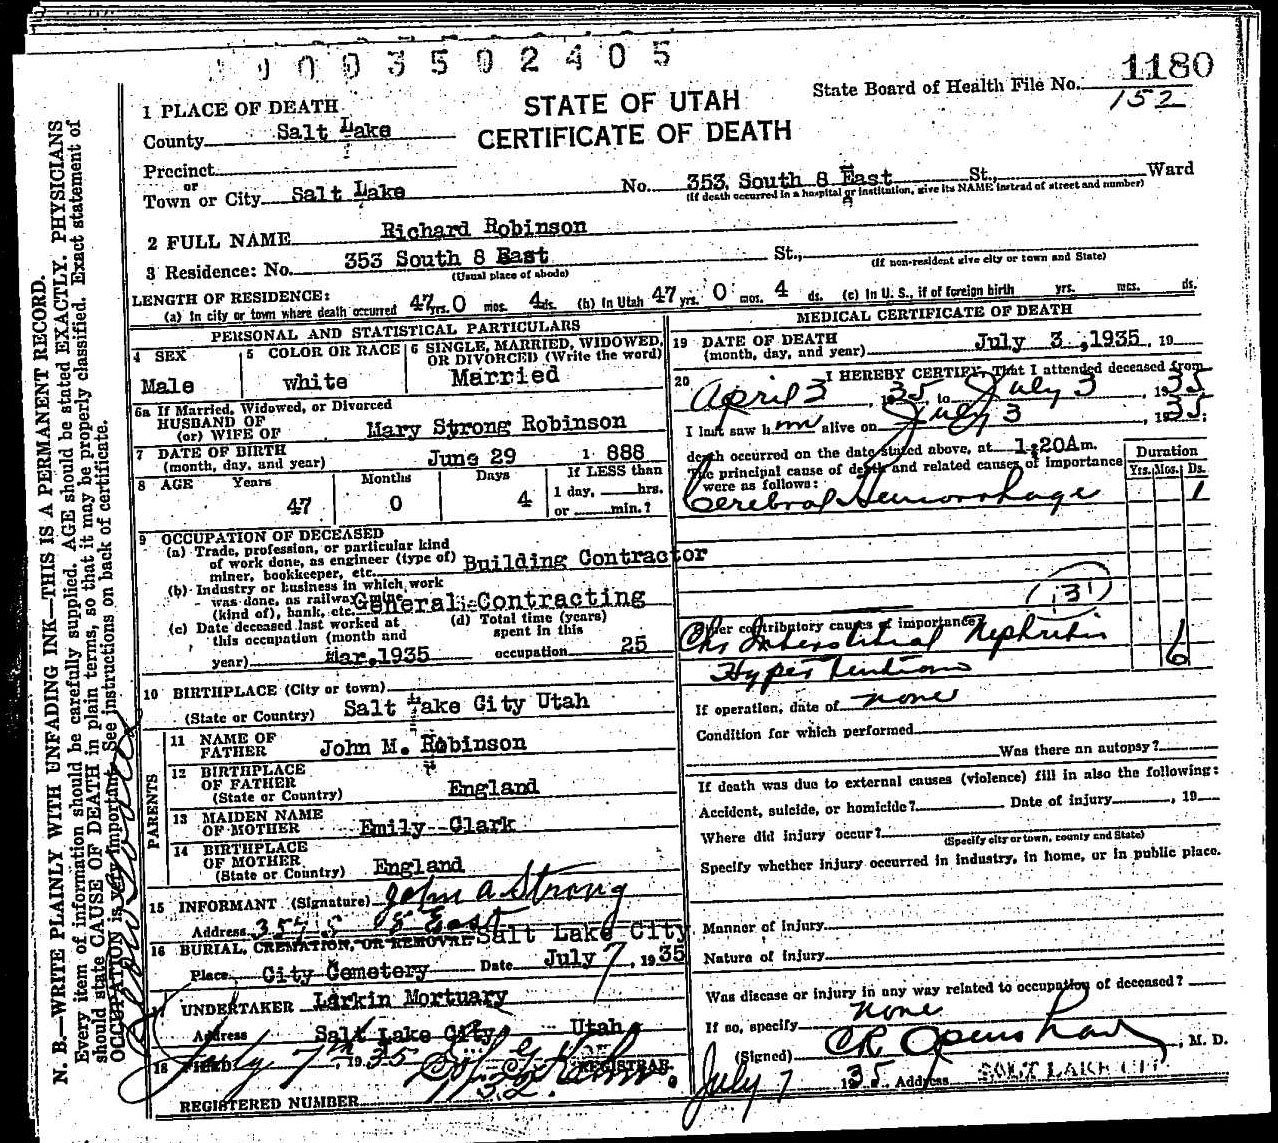 0003502405
1180
State Board of Health File No.
152
STATE OF UTAH
CERTIFICATE OF DEATH
1 PLACE OF DEATH
County Salt Lake
Precinct
or
Town or City Salt Lake No. 353 South 8 East St., Ward
(If death occurred in a hospital or institution, give its NAME instead of street and number)
2 FULL NAME Richard Robinson
3 Residence: No. 353 South 8 East St.,
(Usual place of abode) (If non-resident give city or town and State)
LENGTH OF RESIDENCE:
(a) In city or town where death occurred 47 yrs. 0 mos. 4 ds. (b) In Utah 47 yrs. 0 mos. 4 ds. (c) In U. S., if of foreign birth yrs. mos. ds.
PERSONAL AND STATISTICAL PARTICULARS
4 SEX
Male
5 COLOR OR RACE
white
6 SINGLE, MARRIED, WIDOWED, OR DIVORCED (Write the word)
Married
6a If Married, Widowed, or Divorced
HUSBAND OF
(or) WIFE OF Mary Strong Robinson
7 DATE OF BIRTH
(month, day, and year) June 29 1 888
8 AGE Years Months Days If LESS than
47 0 4 1 day, hrs.
or min.?
9 OCCUPATION OF DECEASED
(a) Trade, profession, or particular kind
of work done, as engineer (type of)
miner, bookkeeper, etc. Building Contractor
(b) Industry or business in which work
was done, as railway, mine
(kind of), bank, etc. General Contracting
(c) Date deceased last worked at
this occupation (month and
year) Mar. 1935
(d) Total time (years)
spent in this
occupation 25
10 BIRTHPLACE (City or town)
(State or Country) Salt Lake City Utah
PARENTS
11 NAME OF
FATHER John M. Robinson
12 BIRTHPLACE
OF FATHER
(State or Country) England
13 MAIDEN NAME
OF MOTHER Emily Clark
14 BIRTHPLACE
OF MOTHER
(State or Country) England
15 INFORMANT (Signature) John A Strong
Address 357 S 8 East
Salt Lake City
16 BURIAL, CREMATION, OR REMOVAL
Place City Cemetery Date July 7, 1935
17 UNDERTAKER Larkin Mortuary
Address Salt Lake City Utah
18 FILED July 7th, 1935 REGISTRAR.
REGISTERED NUMBER 1132.
MEDICAL CERTIFICATE OF DEATH
19 DATE OF DEATH
(month, day, and year) July 3, 1935, 19
20 I HEREBY CERTIFY, That I attended deceased from
April 3, 1935, to July 3, 1935
I last saw him alive on July 3, 1935;
death occurred on the date stated above, at 1:20A m.
The principal cause of death and related causes of importance
were as follows:
Duration
Yrs. Mos. Ds.
Cerebral Hemorrhage 1
131
Other contributory causes of importance?
Chr Interstitial Nephritis 1
Hypertension 6
If operation, date of none
Condition for which performed
Was there an autopsy?
If death was due to external causes (violence) fill in also the following:
Accident, suicide, or homicide? Date of injury, 19
Where did injury occur?
(Specify city or town, county and State)
Specify whether injury occurred in industry, in home, or in public place.
Manner of injury
Nature of injury
Was disease or injury in any way related to occupation of deceased?
If so, specify none
(Signed) CR Openshaw, M. D.
July 7 1935 Address SALT LAKE CITY
N. B.—WRITE PLAINLY WITH UNFADING INK—THIS IS A PERMANENT RECORD.
Every item of information should be carefully supplied. AGE should be stated EXACTLY. PHYSICIANS
should state CAUSE OF DEATH in plain terms, so that it may be properly classified. Exact statement of
OCCUPATION is very important. See instructions on back of certificate.